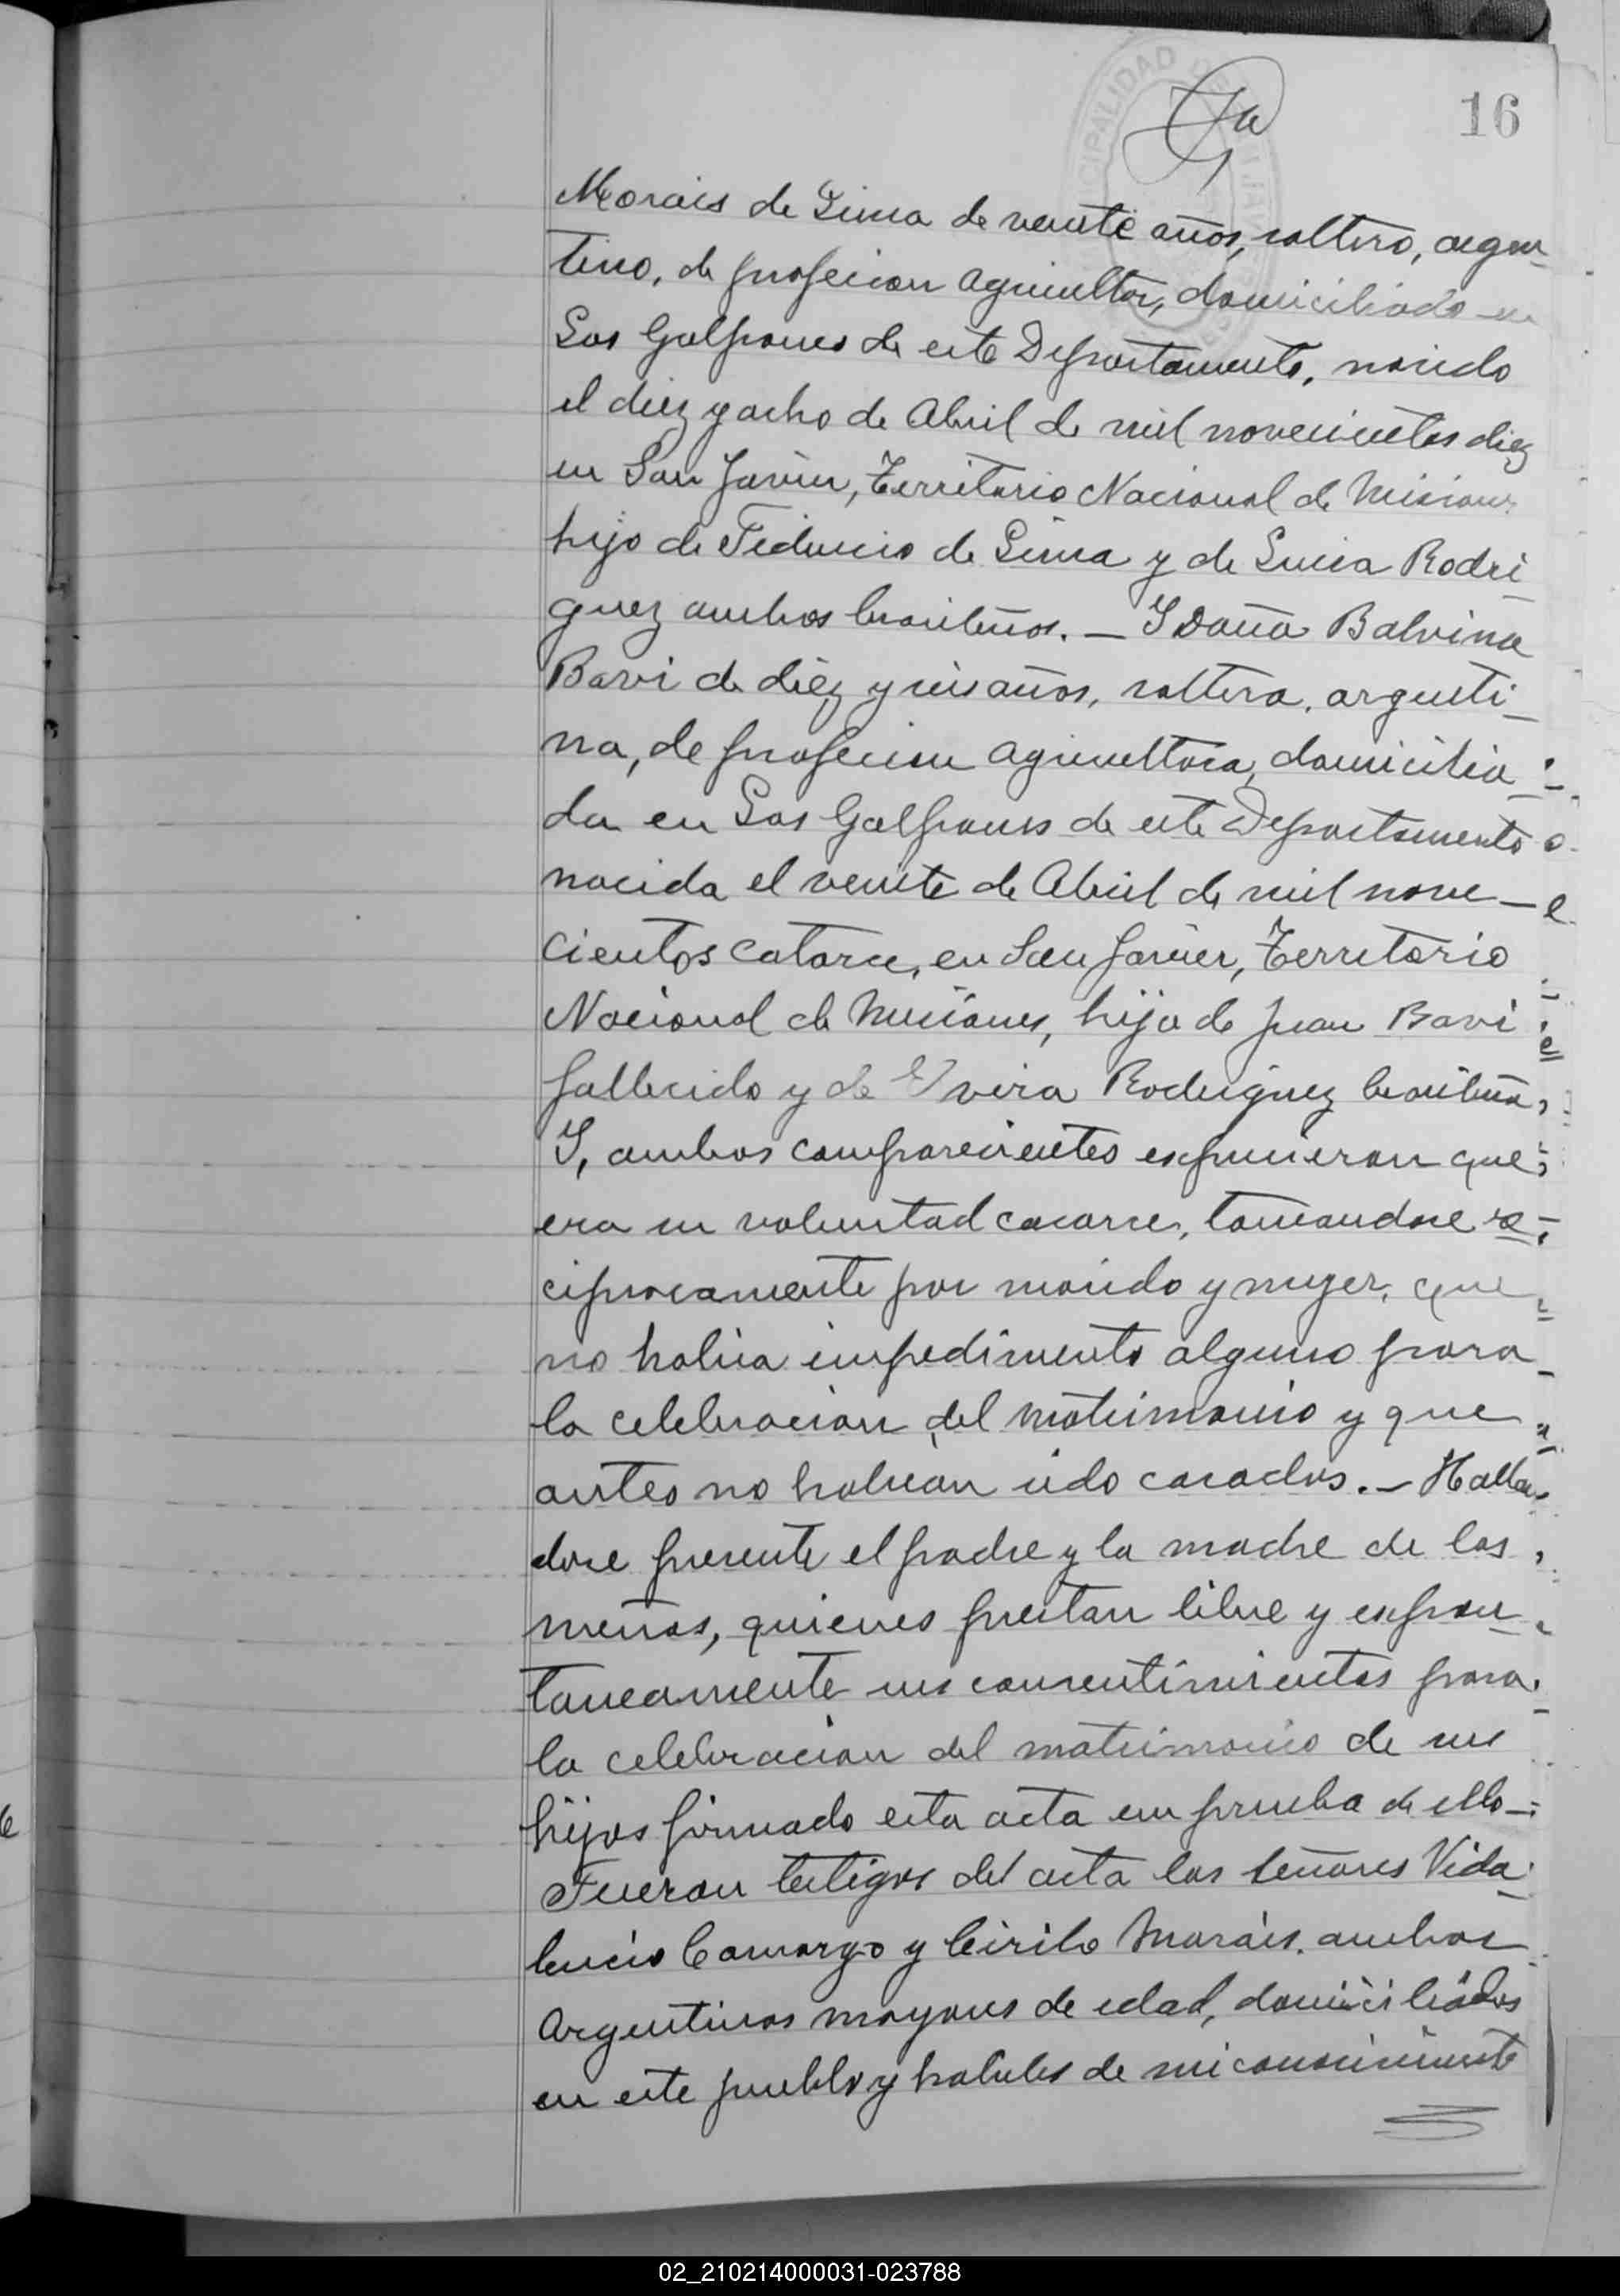 16
Morais de Lima de veinte años, soltero, argen
tino, de profecion agricultor, domiciliado en
Los Galpones de este Departamento, nacido
el diez y ocho de Abril de mil novecientos diez
en San Javier, Territorio Nacional de Misiones
hijo de Fiducio de Lima y de Lucia Rodri
guez ambos brasileños. — Y Doña Balvina
Bavi de diez y seis años, soltera, argenti_
na, de profecion agricultora, domicilia_
da en Los Galpones de este Departamento
nacida el veinte de Abril de mil nove_
cientos catorce, en San Javier, Territorio
Nacional de Misiones, hija de Juan Bavi
fallecido y de Elvira Rodriguez brasileña,
Y, ambos comparecientes expusieron que
era su voluntad casarse, tomandose re_
ciprocamente por marido y mujer, que
no habia impedimento alguno para
la celebracion del matrimonio y que
antes no habian sido casados. — Hallan
dose presente el padre y la madre de los
menos, quienes prestan libre y expon_
taneamente sus consentimientos para
la celebracion del matrimonio de sus
hijos firmado esta acta em prueba de ello—
Fueron testigos del acta los señores Vida_
lencio Camargo y Cirilo Morais. ambos
Argentinos mayores de edad, domiciliados
en este pueblo y habiles de mi conocimiento
02_210214000031-023788